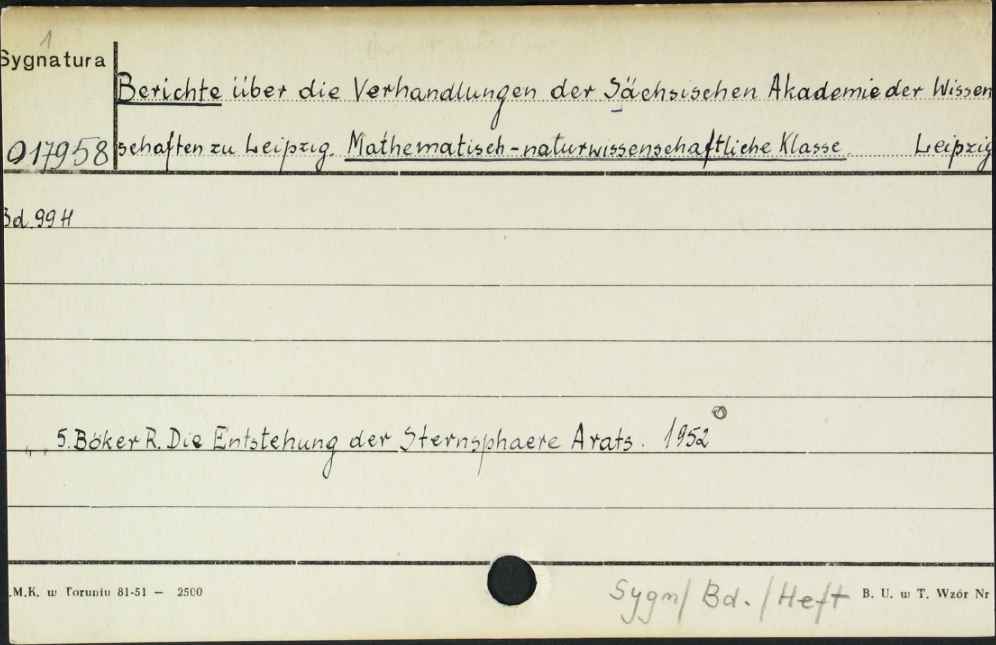 1
Sygnatura
Berichte über die Verhandlungen der Sächsischen Akademie der Wissen
017958 schaften zu Leipzig. Mathematisch-naturwissenschaftliche Klasse. Leipzig
Bd. 99 H
„ „ 5. Böker R. Die Entstehung der Sternsphaere Arats. 1952
.M.K. w Toruniu 81-51 — 2500
Sygn/ Bd. / Heft
B. U. w T. Wzór Nr